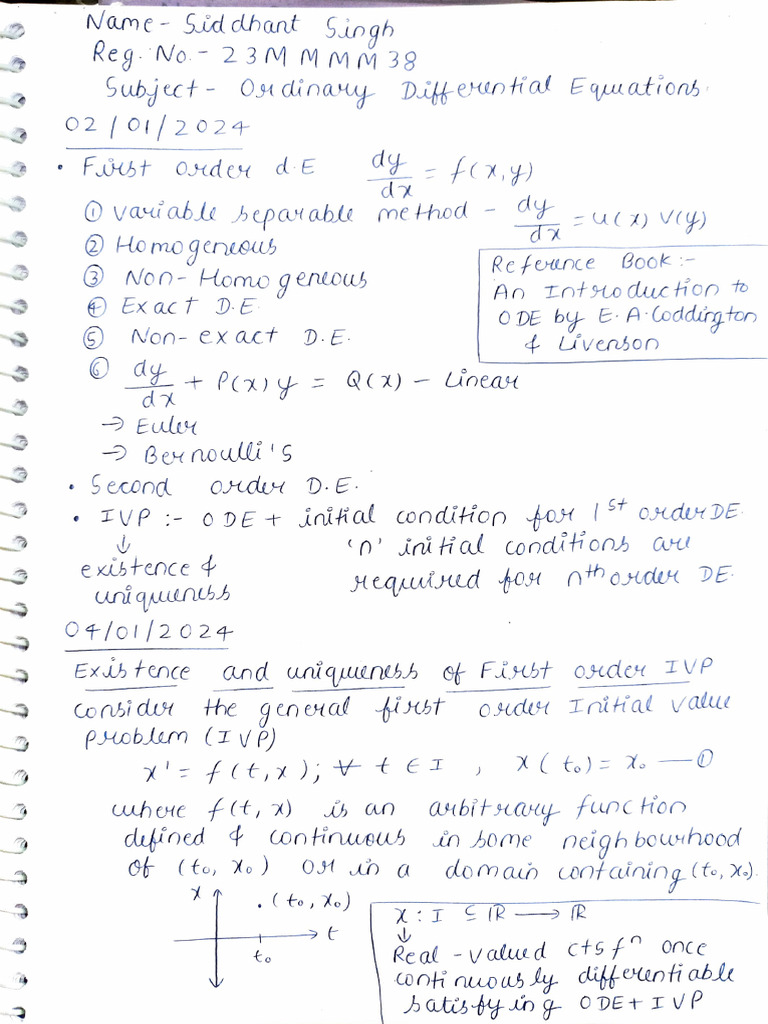 Name - Siddhant Singh
Reg. No. - 23MMMM38
Subject - Ordinary Differential Equations.
02/01/2024
• First order d.E dy/dx = f(x,y)
① variable separable method - dy/dx = u(x) v(y)
② Homogeneous
③ Non-Homogeneous
④ Exact D.E.
⑤ Non-exact D.E.
⑥ dy/dx + P(x)y = Q(x) - Linear
→ Euler
→ Bernoulli's
Reference Book:-
An Introduction to
ODE by E.A.Coddington
& Livenson
• Second order D.E.
• IVP :- ODE + initial condition for 1st order DE.
↓ 'n' initial conditions are
existence & required for nth order DE.
uniqueness
04/01/2024
Existence and uniqueness of First order IVP
consider the general first order Initial value
problem (IVP)
x' = f(t,x); ∀ t ∈ I , x(t₀) = x₀ — ①
where f(t,x) is an arbitrary function
defined & continuous in some neighbourhood
of (t₀, x₀) or in a domain containing (t₀, x₀).
x
.(t₀, x₀)
t
t₀
x : I ⊆ ℝ ⟶ ℝ
↓
Real-valued cts fⁿ once
continuously differentiable
satisfying ODE + IVP